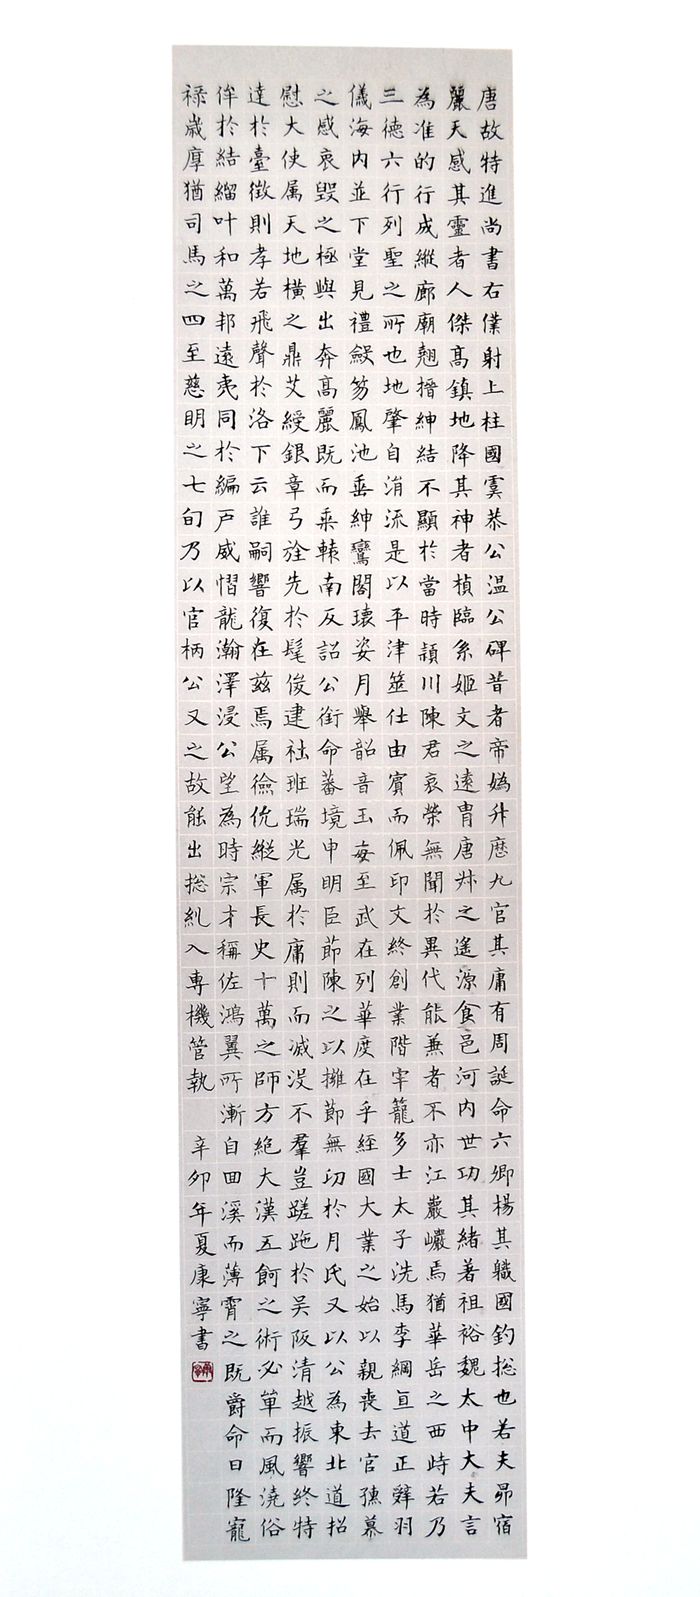 唐故特進尚書右僕射上柱國虞恭公温公碑昔者帝媯升歴九官其庸有周誕命六卿楊其職國鈞捴也若夫昴宿
麗天感其靈者人傑高鎮地降其神者楨臨系姬文之遠胄唐叔之遙源食邑河内世功其緒著祖裕魏太中大夫言
為准的行成縱廊廟翹搢紳結不顯於當時潁川陳君哀榮無聞於異代能兼者不亦江巖巘焉猶華岳之西峙若乃
三德六行列聖之所也地肇自涓流是以平津筮仕由賓而佩印文終創業階宰籠多士太子洗馬李綱直道正辭羽
儀海内並下堂見禮笏鳳池垂紳鸞閣瓌姿月舉韶音玉每至武在列華度在乎經國大業之始以親喪去官孺慕
之感哀毀之極與出奔高麗既而乘轅南反詔公銜命蕃境申明臣節陳之以擁節無功於月氏又以公為東北道招
慰大使属天地橫之鼎艾綬銀章弓旌先於髦俊建社班瑞光属於庸則而滅没不羣豈蹉跎於吴阪清越振響終特
達於臺徵則孝若飛聲於洛下云誰嗣響復在兹焉属儉縱軍長史十萬之師方絶大漢五餌之術必單而風澆俗
侔於結繩叶和萬邦遠夷同於編戸威慴龍瀚澤浸公望為時宗才稱佐鴻翼所漸自田溪而薄霄之既爵命日隆寵
禄歲厚猶司馬之四至慈明之七旬乃以官柄公又之故能出捴糺入專機管執 辛卯年夏康寧書